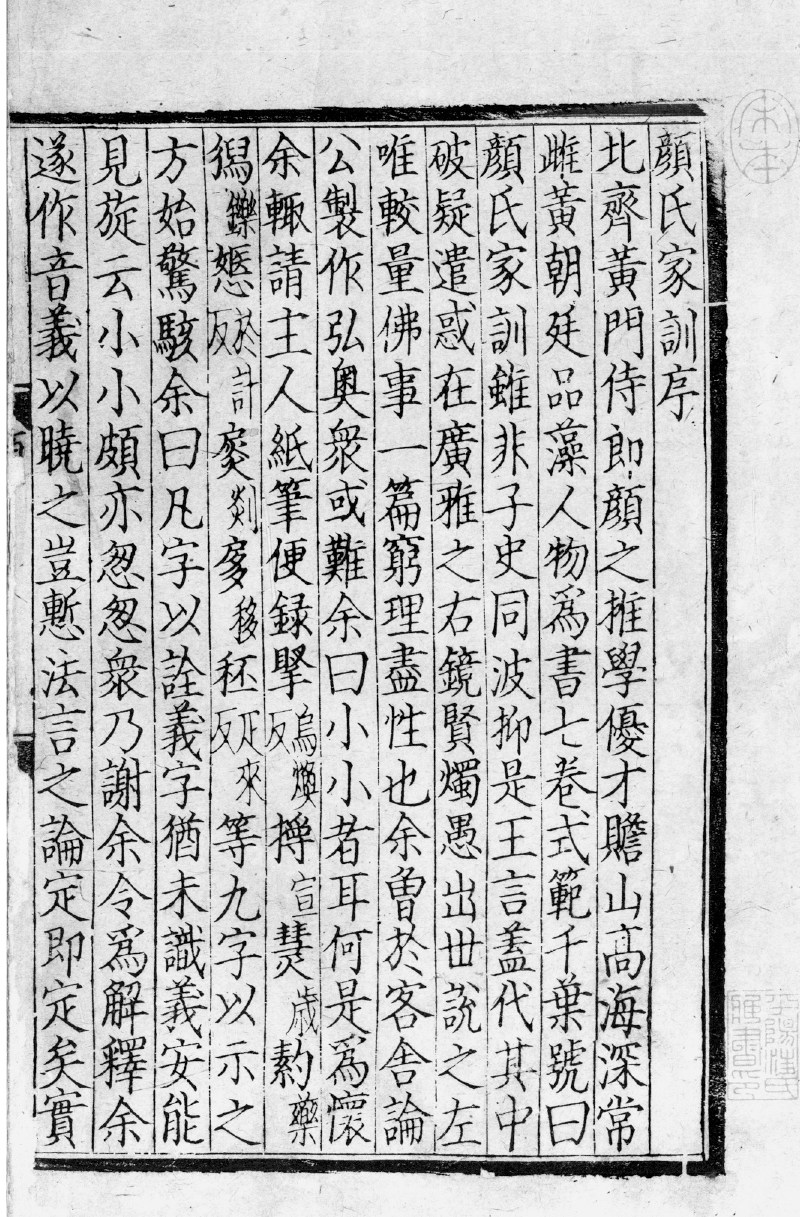 顔氏家訓序
北齊黄門侍郎顔之推學優才贍山髙海深常
雌黄朝廷品藻人物爲書七卷式範千葉號曰
顔氏家訓雖非子史同波抑是王言蓋代其中
破疑遣惑在廣雅之右鏡賢燭愚出世說之左
唯較量佛事一篇窮理盡性也余曽於客舎論
公製作弘奥衆或難余曰小小者耳何是爲懷
余輙請主人紙筆便録掔烏煥反㨔宣熭歳葯藥
獡鑠㥷於計反扊剡㢋移秠疋來反等九字以示之
方始驚駭余曰凡字以詮義字猶未識義安能
見旋云小小頗亦怱怱衆乃謝余令爲解釋余
遂作音義以曉之豈慙法言之論定即定矣實